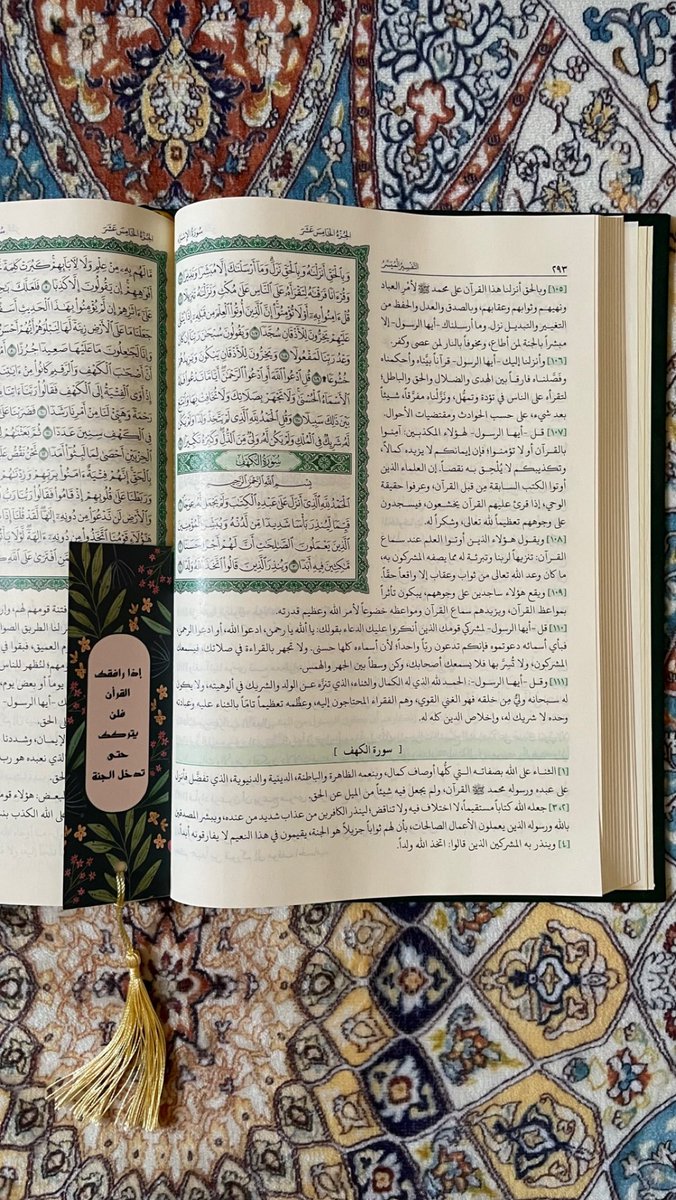 ٢٩٣
التفسير الميسر
الجزء الخامس عشر
سورة الإسراء
وَبِالْحَقِّ أَنزَلْنَٰهُ وَبِالْحَقِّ نَزَلَ وَمَا أَرْسَلْنَٰكَ إِلَّا مُبَشِّرًا وَنَذِيرًا ١٠٥
وَقُرْءَانًا فَرَقْنَٰهُ لِتَقْرَأَهُ عَلَى النَّاسِ عَلَىٰ مُكْثٍ وَنَزَّلْنَٰهُ تَنزِيلًا ١٠٦
قُلْ ءَامِنُوا بِهِ أَوْ لَا تُؤْمِنُوا إِنَّ الَّذِينَ أُوتُوا الْعِلْمَ مِن قَبْلِهِ إِذَا يُتْلَىٰ
عَلَيْهِمْ يَخِرُّونَ لِلْأَذْقَانِ سُجَّدًا ١٠٧ وَيَقُولُونَ سُبْحَٰنَ رَبِّنَا إِن كَانَ
وَعْدُ رَبِّنَا لَمَفْعُولًا ١٠٨ وَيَخِرُّونَ لِلْأَذْقَانِ يَبْكُونَ وَيَزِيدُهُمْ
خُشُوعًا ١٠٩ قُلِ ادْعُوا اللَّهَ أَوِ ادْعُوا الرَّحْمَٰنَ أَيًّا مَّا تَدْعُوا فَلَهُ
الْأَسْمَاءُ الْحُسْنَىٰ وَلَا تَجْهَرْ بِصَلَاتِكَ وَلَا تُخَافِتْ بِهَا وَابْتَغِ
بَيْنَ ذَٰلِكَ سَبِيلًا ١١٠ وَقُلِ الْحَمْدُ لِلَّهِ الَّذِي لَمْ يَتَّخِذْ وَلَدًا وَلَمْ يَكُن
لَّهُ شَرِيكٌ فِي الْمُلْكِ وَلَمْ يَكُن لَّهُ وَلِيٌّ مِّنَ الذُّلِّ وَكَبِّرْهُ تَكْبِيرًا ١١١
سورة الكهف
بِسْمِ اللَّهِ الرَّحْمَٰنِ الرَّحِيمِ
الْحَمْدُ لِلَّهِ الَّذِي أَنزَلَ عَلَىٰ عَبْدِهِ الْكِتَٰبَ وَلَمْ يَجْعَل لَّهُ عِوَجًا ١
قَيِّمًا لِّيُنذِرَ بَأْسًا شَدِيدًا مِّن لَّدُنْهُ وَيُبَشِّرَ الْمُؤْمِنِينَ
الَّذِينَ يَعْمَلُونَ الصَّٰلِحَٰتِ أَنَّ لَهُمْ أَجْرًا حَسَنًا ٢
مَّٰكِثِينَ فِيهِ أَبَدًا ٣ وَيُنذِرَ الَّذِينَ قَالُوا اتَّخَذَ اللَّهُ وَلَدًا ٤
[١٠٥] وبالحق أنزلنا هذا القرآن على محمد ﷺ لأمر العباد
ونهيهم وثوابهم وعقابهم، وبالصدق والعدل والحفظ من
التغيير والتبديل نزل. وما أرسلناك -أيها الرسول- إلا
مبشراً بالجنة لمن أطاع، ومخوفاً بالنار لمن عصى وكفر.
[١٠٦] وأنزلنا إليك -أيها الرسول- قرآناً بيَّناه وأحكمناه
وفصَّلناه فارقاً بين الهدى والضلال والحق والباطل؛
لتقرأه على الناس في تؤدة وتمهُّل، ونزَّلناه مفرَّقاً، شيئاً
بعد شيء على حسب الحوادث ومقتضيات الأحوال.
[١٠٧] قل -أيها الرسول- لهؤلاء المكذبين: آمنوا
بالقرآن أو لا تؤمنوا؛ فإن إيمانكم لا يزيده كمالاً،
وتكذيبكم لا يُلْحِق به نقصاً. إن العلماء الذين
أوتوا الكتب السابقة مِن قبل القرآن، وعرفوا حقيقة
الوحي، إذا قرئ عليهم القرآن يخشعون، فيسجدون
على وجوههم تعظيماً لله تعالى، وشكراً له.
[١٠٨] ويقول هؤلاء الذين أوتوا العلم عند سماع
القرآن: تنزيهاً لربنا وتبرئة له مما يصفه المشركون به،
ما كان وعد الله تعالى من ثواب وعقاب إلا واقعاً حقّاً.
[١٠٩] ويقع هؤلاء ساجدين على وجوههم، يبكون تأثراً
بمواعظ القرآن، ويزيدهم سماع القرآن ومواعظه خضوعاً لأمر الله وعظيم قدرته.
[١١٠] قل -أيها الرسول- لمشركي قومك الذين أنكروا عليك الدعاء بقولك: يا الله يا رحمن، ادعوا الله، أو ادعوا الرحمن،
فبأي أسمائه دعوتموه فإنكم تدعون ربّاً واحداً؛ لأن أسماءه كلها حسنى. ولا تجهر بالقراءة في صلاتك، فيسمعك
المشركون، ولا تُسِرَّ بها فلا يسمعك أصحابك، وكن وسطاً بين الجهر والهمس.
[١١١] وقل -أيها الرسول-: الحمد لله الذي له الكمال والثناء، الذي تنزَّه عن الولد والشريك في ألوهيته، ولا يكون
له سبحانه وليٌّ من خلقه فهو الغني القوي، وهم الفقراء المحتاجون إليه، وعظِّمه تعظيماً تامّاً بالثناء عليه وعبادته
وحده لا شريك له، وإخلاص الدين كله له.
[ سورة الكهف ]
[١] الثناء على الله بصفاته التي كلُّها أوصاف كمال، وبنعمه الظاهرة والباطنة، الدينية والدنيوية، الذي تفضَّل فأنزل
على عبده ورسوله محمد ﷺ القرآن، ولم يجعل فيه شيئاً من الميل عن الحق.
[٣،٢] جعله الله كتاباً مستقيماً، لا اختلاف فيه ولا تناقض؛ لينذر الكافرين من عذاب شديد من عنده، ويبشر المصدقين
بالله ورسوله الذين يعملون الأعمال الصالحات، بأن لهم ثواباً جزيلاً هو الجنة، يقيمون في هذا النعيم لا يفارقونه أبداً.
[٤] وينذر به المشركين الذين قالوا: اتخذ الله ولداً.
الجزء الخامس عشر
مَّا لَهُم بِهِ مِنْ عِلْمٍ وَلَا لِآبَائِهِمْ كَبُرَتْ كَلِمَةً
أَفْوَاهِهِمْ إِن يَقُولُونَ إِلَّا كَذِبًا ٥ فَلَعَلَّكَ
عَلَىٰ ءَاثَٰرِهِمْ إِن لَّمْ يُؤْمِنُوا بِهَٰذَا الْحَدِيثِ
جَعَلْنَا مَا عَلَى الْأَرْضِ زِينَةً لَّهَا لِنَبْلُوَهُمْ أَيُّهُمْ
وَإِنَّا لَجَٰعِلُونَ مَا عَلَيْهَا صَعِيدًا جُرُزًا ٨
أَنَّ أَصْحَٰبَ الْكَهْفِ وَالرَّقِيمِ كَانُوا مِنْ
إِذْ أَوَى الْفِتْيَةُ إِلَى الْكَهْفِ فَقَالُوا رَبَّنَا ءَاتِنَا
رَحْمَةً وَهَيِّئْ لَنَا مِنْ أَمْرِنَا رَشَدًا ١٠ فَضَرَبْنَا
فِي الْكَهْفِ سِنِينَ عَدَدًا ١١ ثُمَّ بَعَثْنَٰهُمْ
الْحِزْبَيْنِ أَحْصَىٰ لِمَا لَبِثُوا أَمَدًا ١٢ نَّحْنُ نَقُصُّ
بِالْحَقِّ إِنَّهُمْ فِتْيَةٌ ءَامَنُوا بِرَبِّهِمْ وَزِدْنَٰهُمْ
وَرَبَطْنَا عَلَىٰ قُلُوبِهِمْ إِذْ قَامُوا فَقَالُوا رَبُّنَا
وَالْأَرْضِ لَن نَّدْعُوَا مِن دُونِهِ إِلَٰهًا لَّقَدْ قُلْنَا
إذا رافقك
القرآن
فلن
يتركك
حتى
تدخل الجنة